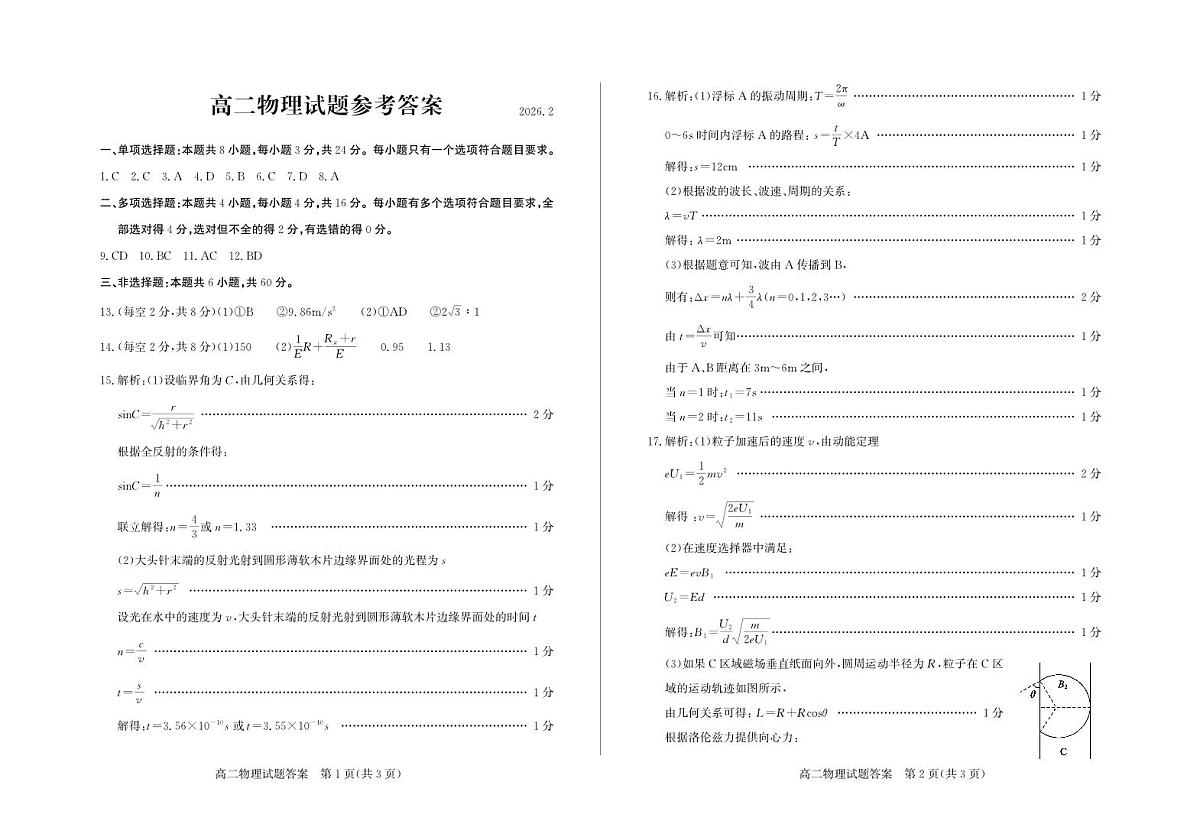 高二物理试题参考答案 2026.2
一、单项选择题:本题共8小题,每小题3分,共24分。每小题只有一个选项符合题目要求。
1.C 2.C 3.A 4.D 5.B 6.C 7.D 8.A
二、多项选择题:本题共4小题,每小题4分,共16分。每小题有多个选项符合题目要求,全
部选对得4分,选对但不全的得2分,有选错的得0分。
9.CD 10.BC 11.AC 12.BD
三、非选择题:本题共6小题,共60分。
13.(每空2分,共8分)(1)①B ②9.86m/s² (2)①AD ②2√3∶1
14.(每空2分,共8分)(1)150 (2)1/E R+(Rₓ+r)/E 0.95 1.13
15.解析:(1)设临界角为C,由几何关系得:
sinC=r/√(h²+r²) ………… 2分
根据全反射的条件得:
sinC=1/n ………… 1分
联立解得:n=4/3或n=1.33 ………… 1分
(2)大头针末端的反射光射到圆形薄软木片边缘界面处的光程为s
s=√(h²+r²) ………… 1分
设光在水中的速度为v,大头针末端的反射光射到圆形薄软木片边缘界面处的时间t
n=c/v ………… 1分
t=s/v ………… 1分
解得:t=3.56×10⁻¹⁰s或t=3.55×10⁻¹⁰s ………… 1分
高二物理试题答案 第1页(共3页)
16.解析:(1)浮标A的振动周期:T=2π/ω ………… 1分
0~6s时间内浮标A的路程: s=t/T×4A ………… 1分
解得:s=12cm ………… 1分
(2)根据波的波长、波速、周期的关系:
λ=vT ………… 1分
解得: λ=2m ………… 1分
(3)根据题意可知,波由A传播到B,
则有:Δx=nλ+3/4λ(n=0,1,2,3…) ………… 2分
由t=Δx/v可知 ………… 1分
由于A、B距离在3m~6m之间,
当n=1时:t₁=7s ………… 1分
当n=2时:t₂=11s ………… 1分
17.解析:(1)粒子加速后的速度v,由动能定理
eU₁=1/2mv² ………… 2分
解得:v=√(2eU₁/m) ………… 1分
(2)在速度选择器中满足:
eE=evB₁ ………… 1分
U₂=Ed ………… 1分
解得:B₁=U₂/d√(m/2eU₁) ………… 1分
(3)如果C区域磁场垂直纸面向外,圆周运动半径为R,粒子在C区
域的运动轨迹如图所示,
由几何关系可得: L=R+Rcosθ ………… 1分
根据洛伦兹力提供向心力:
θ
B₂
C
高二物理试题答案 第2页(共3页)